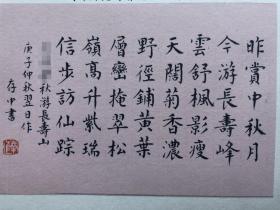 昨賞中秋月
今游長壽峰
雲舒楓影瘦
天闊菊香濃
野徑鋪黃葉
層巒掩翠松
嶺高升紫瑞
信步訪仙踪
秋游長壽山
庚子仲秋翌日作
存中書